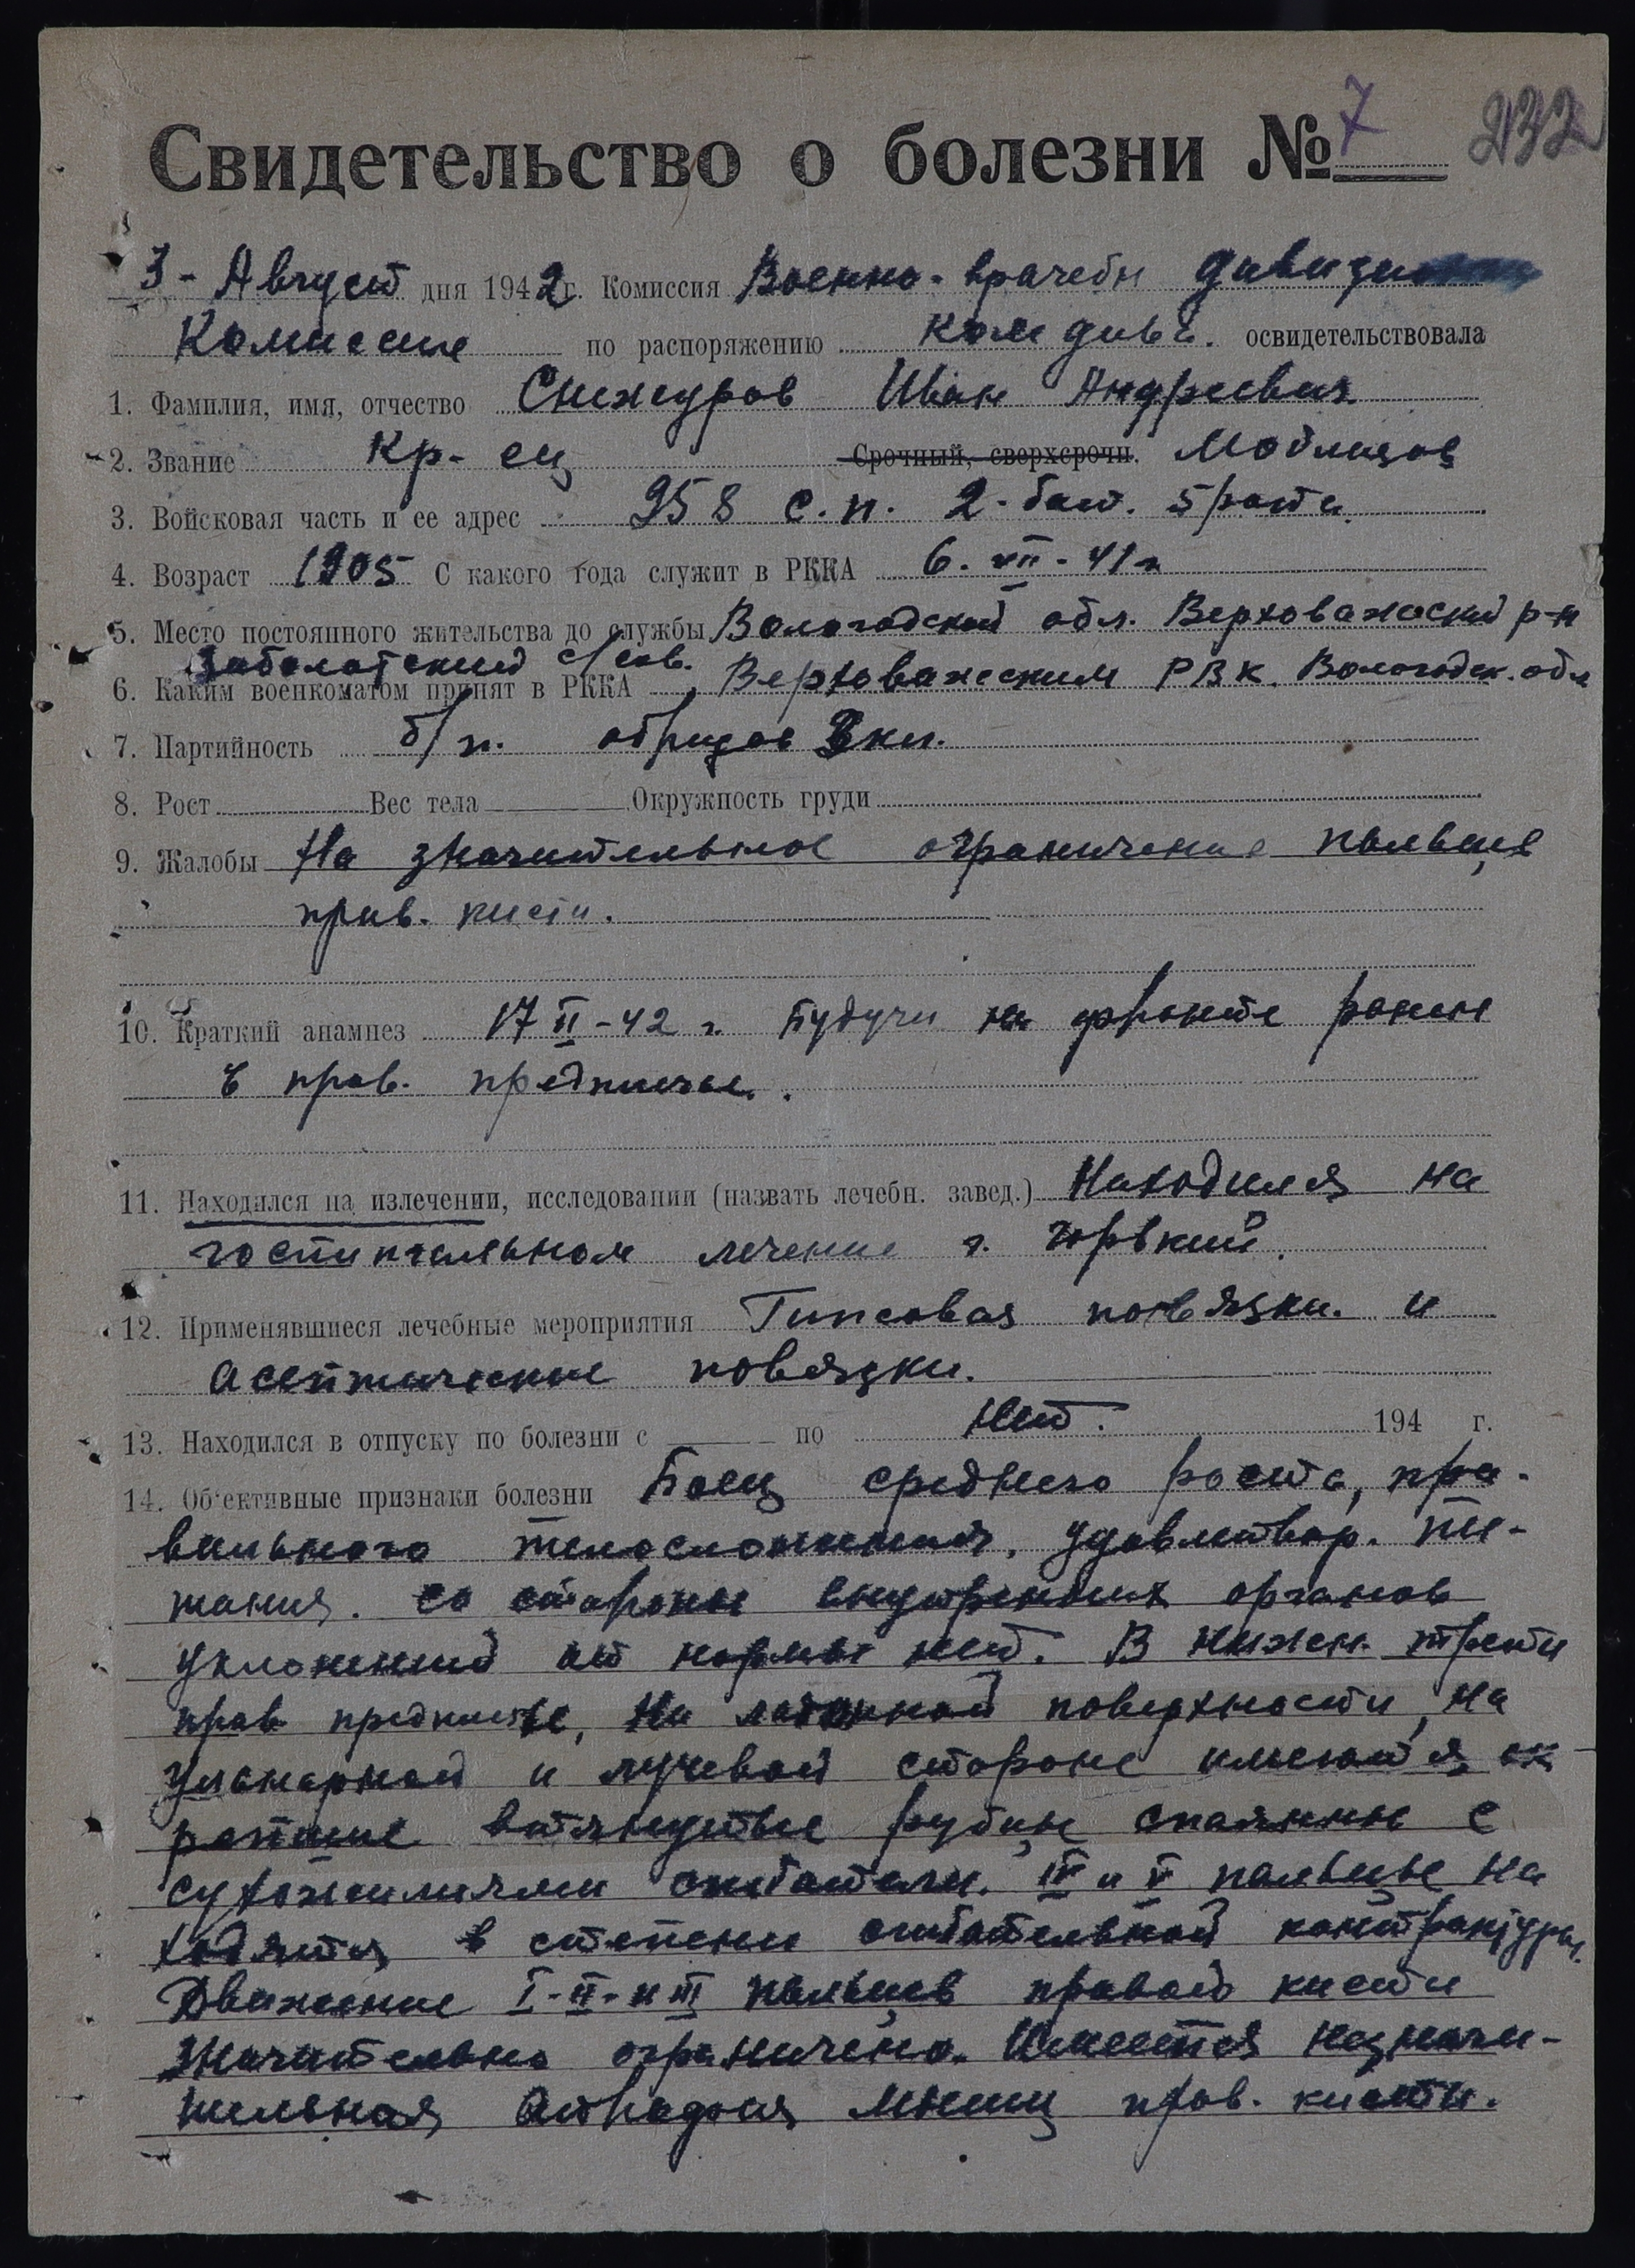 Свидетельство о болезни № 7 232
3 - Август дня 1942 г. Комиссия Военно-врачебн
Комиссия по распоряжению Ком див. освидетельствовала
1. Фамилия, имя, отчество Снежуров Иван Андреевич
2. Звание Кр-ец Срочный, сверхсрочн.
3. Войсковая часть и ее адрес 958 с.п. 2-бат. 5 роты
4. Возраст 1905 С какого года служит в РККА 6. VII - 41 г
5. Место постоянного жительства до службы Вологодской обл. Верховажский р-н
Заболотский с/сов.
6. Каким военкоматом принят в РККА Верховажским РВК. Вологодск. обл
7. Партийность б/п. 3 кл.
8. Рост Вес тела Окружность груди
9. Жалобы На значительное ограничение пальцев
прав. кисти.
10. Краткий анамнез 17 II - 42 г. Будучи на фронте ранен
в прав. предплечье.
11. Находился на излечении, исследовании (назвать лечебн. завед.) Находился на
госпитальном лечение г. Горький.
12. Применявшиеся лечебные мероприятия Гипсовая повязка. и
асептические повязки.
13. Находился в отпуску по болезни с по нет. 194 г.
14. Об'ективные признаки болезни Боец среднего роста, пра-
вильного телосложения, удовлетвор. пи-
тания. Со стороны внутренних органов
уклонений от нормы нет. В нижн. трети
прав предплечье, на ладонной поверхности, на
ульнарной и лучевой стороне имеются ок
репшие втянутые рубцы спаянные с
сухожилиями сгибатели. IV и V пальцы на
ходятся в степени сгибательной контрактуры.
Движение I-II-и III пальцев правой кисти
значительно ограничено. Имеется незначи-
тельная атрофия мышц прав. кисти.